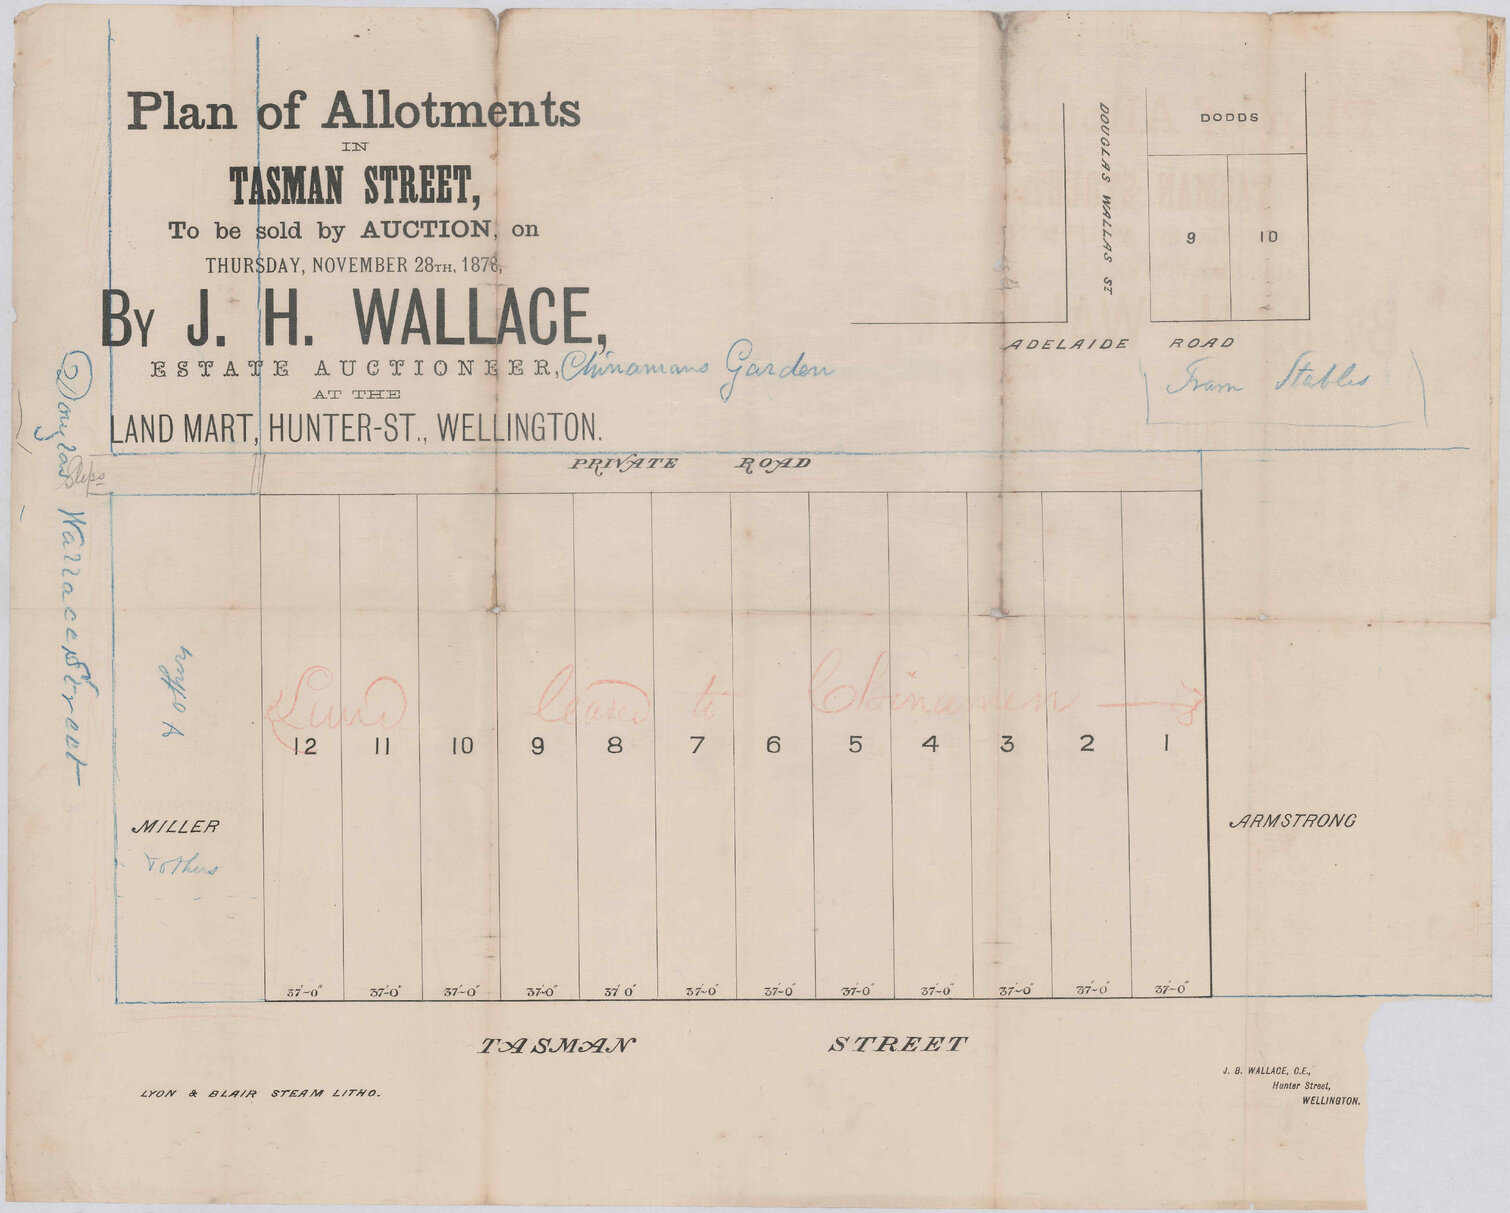 Plan of Allotments
IN
TASMAN STREET,
To be sold by AUCTION, on
THURSDAY, NOVEMBER 28TH, 1878,
BY J. H. WALLACE,
ESTATE AUCTIONEER,
AT THE
LAND MART, HUNTER-ST., WELLINGTON.
Chinamans Garden
DOUGLAS WALLAS ST
DODDS
9 10
ADELAIDE ROAD
Tram Stables
PRIVATE ROAD
Steps
Douglas Wallace Street
Land leased to Chinamen
12 11 10 9 8 7 6 5 4 3 2 1
MILLER
& others
ARMSTRONG
37'-0" 37'-0" 37'-0" 37'-0" 37'0" 37'-0" 37'-0" 37'-0" 37'-0" 37'-0" 37'-0" 37'-0"
TASMAN STREET
LYON & BLAIR STEAM LITHO.
J. B. WALLACE, C.E.,
Hunter Street,
WELLINGTON.